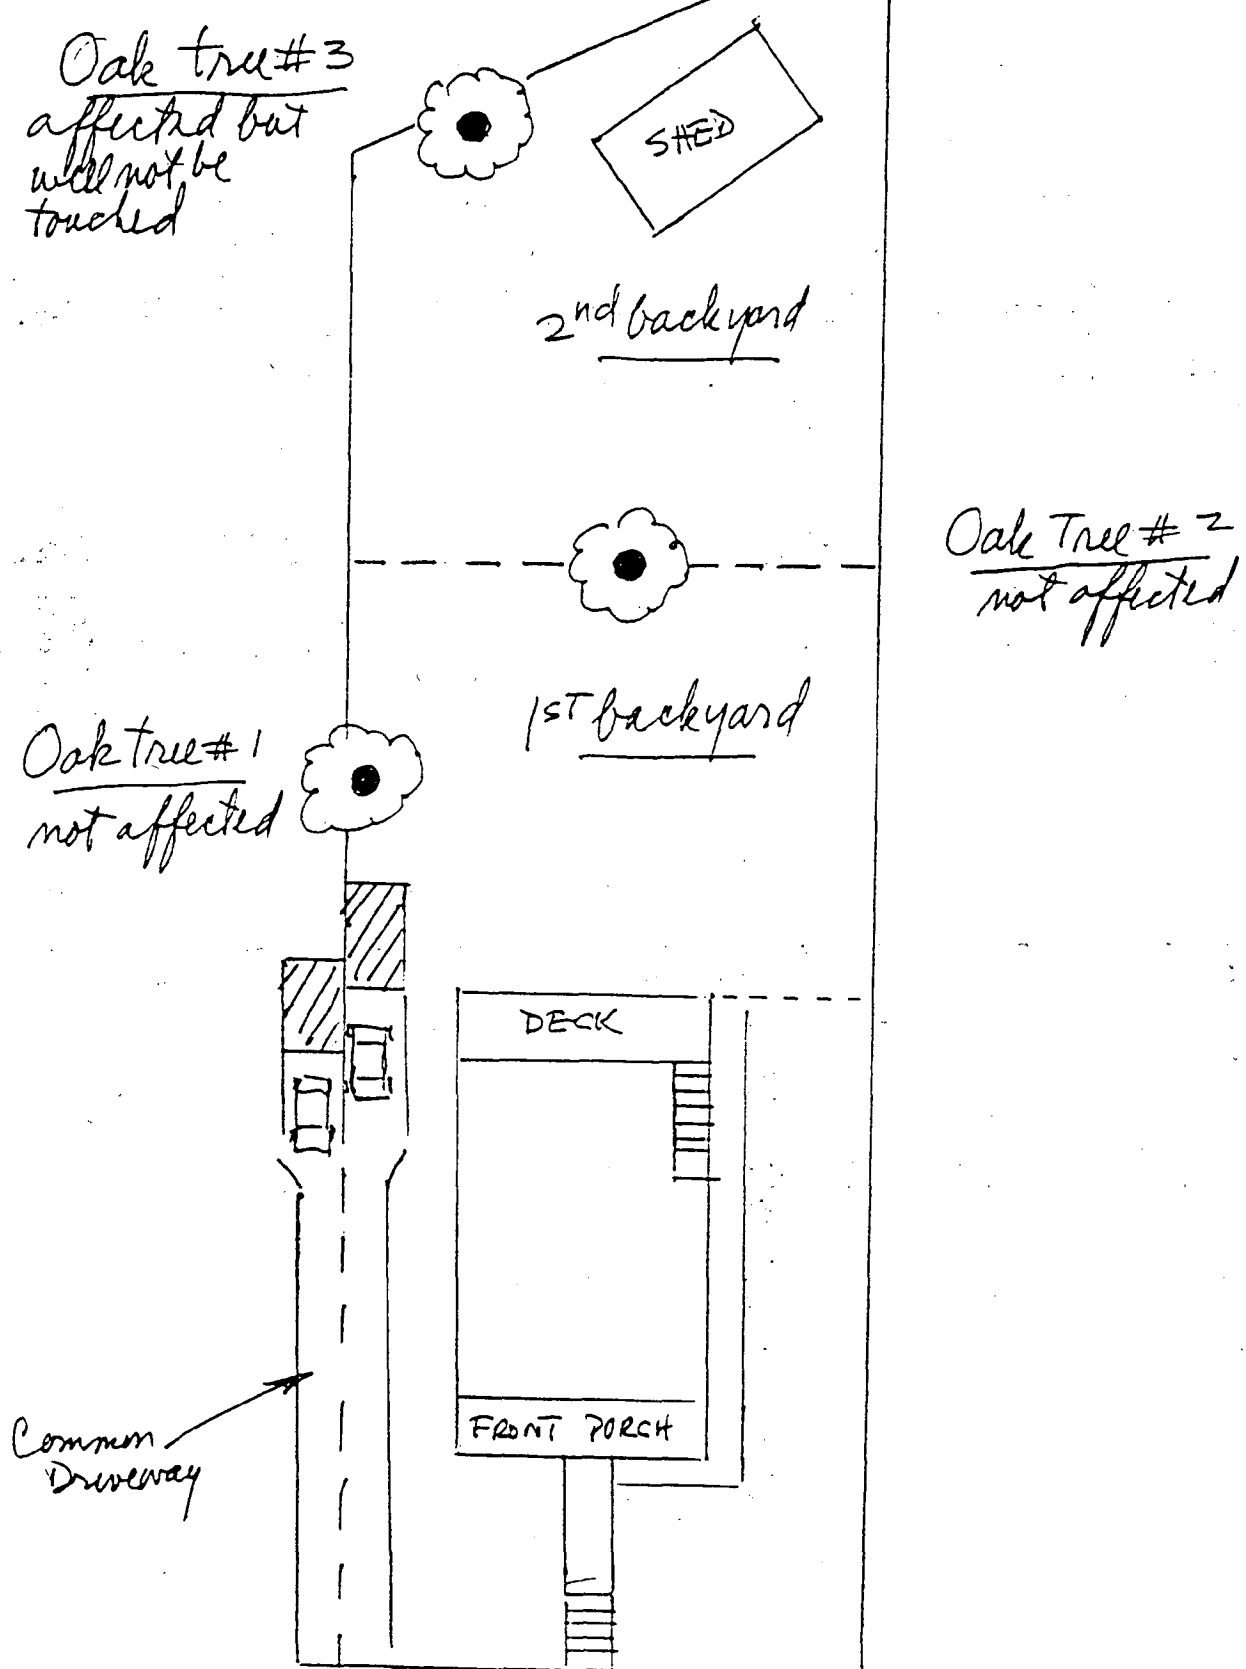 Oak tree #3
affected but
will not be
touched
SHED
2nd backyard
Oak Tree # 2
not affected
1ST backyard
Oak tree # 1
not affected
DECK
FRONT PORCH
Common
Driveway